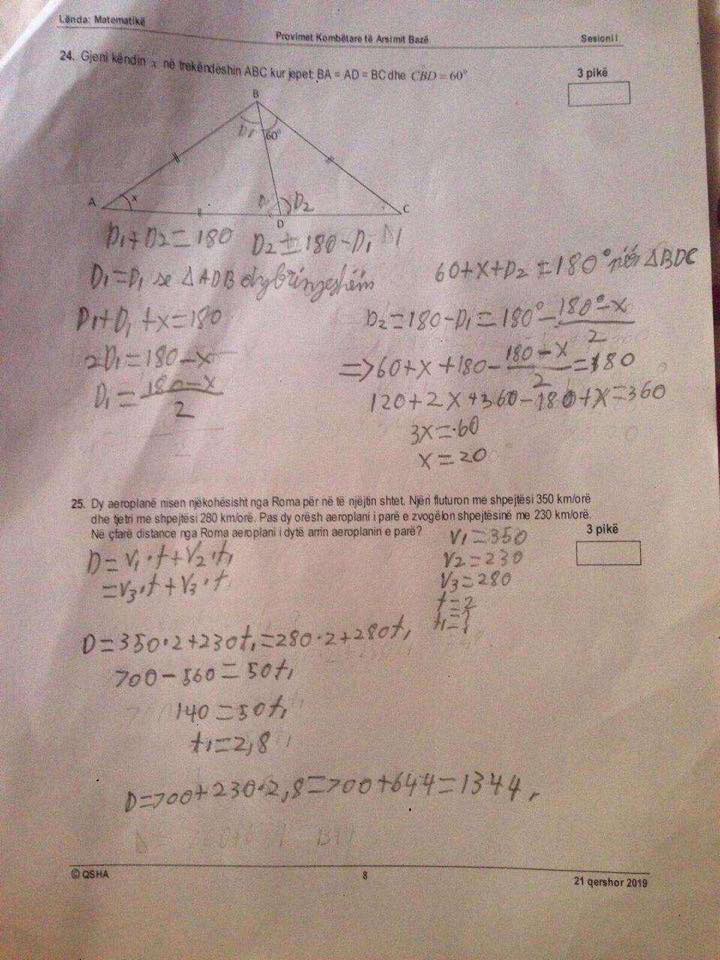 Lënda: Matematikë
Provimet Kombëtare të Arsimit Bazë
Sesioni I
24. Gjeni këndin x në trekëndëshin ABC kur jepet: BA = AD = BC dhe CBD = 60°
3 pikë
B
D1 60°
A x D2 C
D
D1+D2=180 D2=180-D1
D1=D1 se ΔADB dybrinjeshëm
D1+D1+x=180
2D1=180-x
D1=180-x/2
60+x+D2=180° për ΔBDC
D2=180-D1=180°-180°-x/2
=>60+x+180-180-x/2=180
120+2x+360-180+x=360
3x=60
x=20
25. Dy aeroplanë nisen njëkohësisht nga Roma për në të njëjtin shtet. Njëri fluturon me shpejtësi 350 km/orë
dhe tjetri me shpejtësi 280 km/orë. Pas dy orësh aeroplani i parë e zvogëlon shpejtësinë me 230 km/orë.
Në çfarë distance nga Roma aeroplani i dytë arrin aeroplanin e parë?
3 pikë
V1=350
V2=230
V3=280
t=2
D=V1·t+V2·t1
=V3·t+V3·t1
D=350·2+230t1=280·2+280t1
700-560=50t1
140=50t1
t1=2,8
D=700+230·2,8=700+644=1344,
© QSHA
8
21 qershor 2019